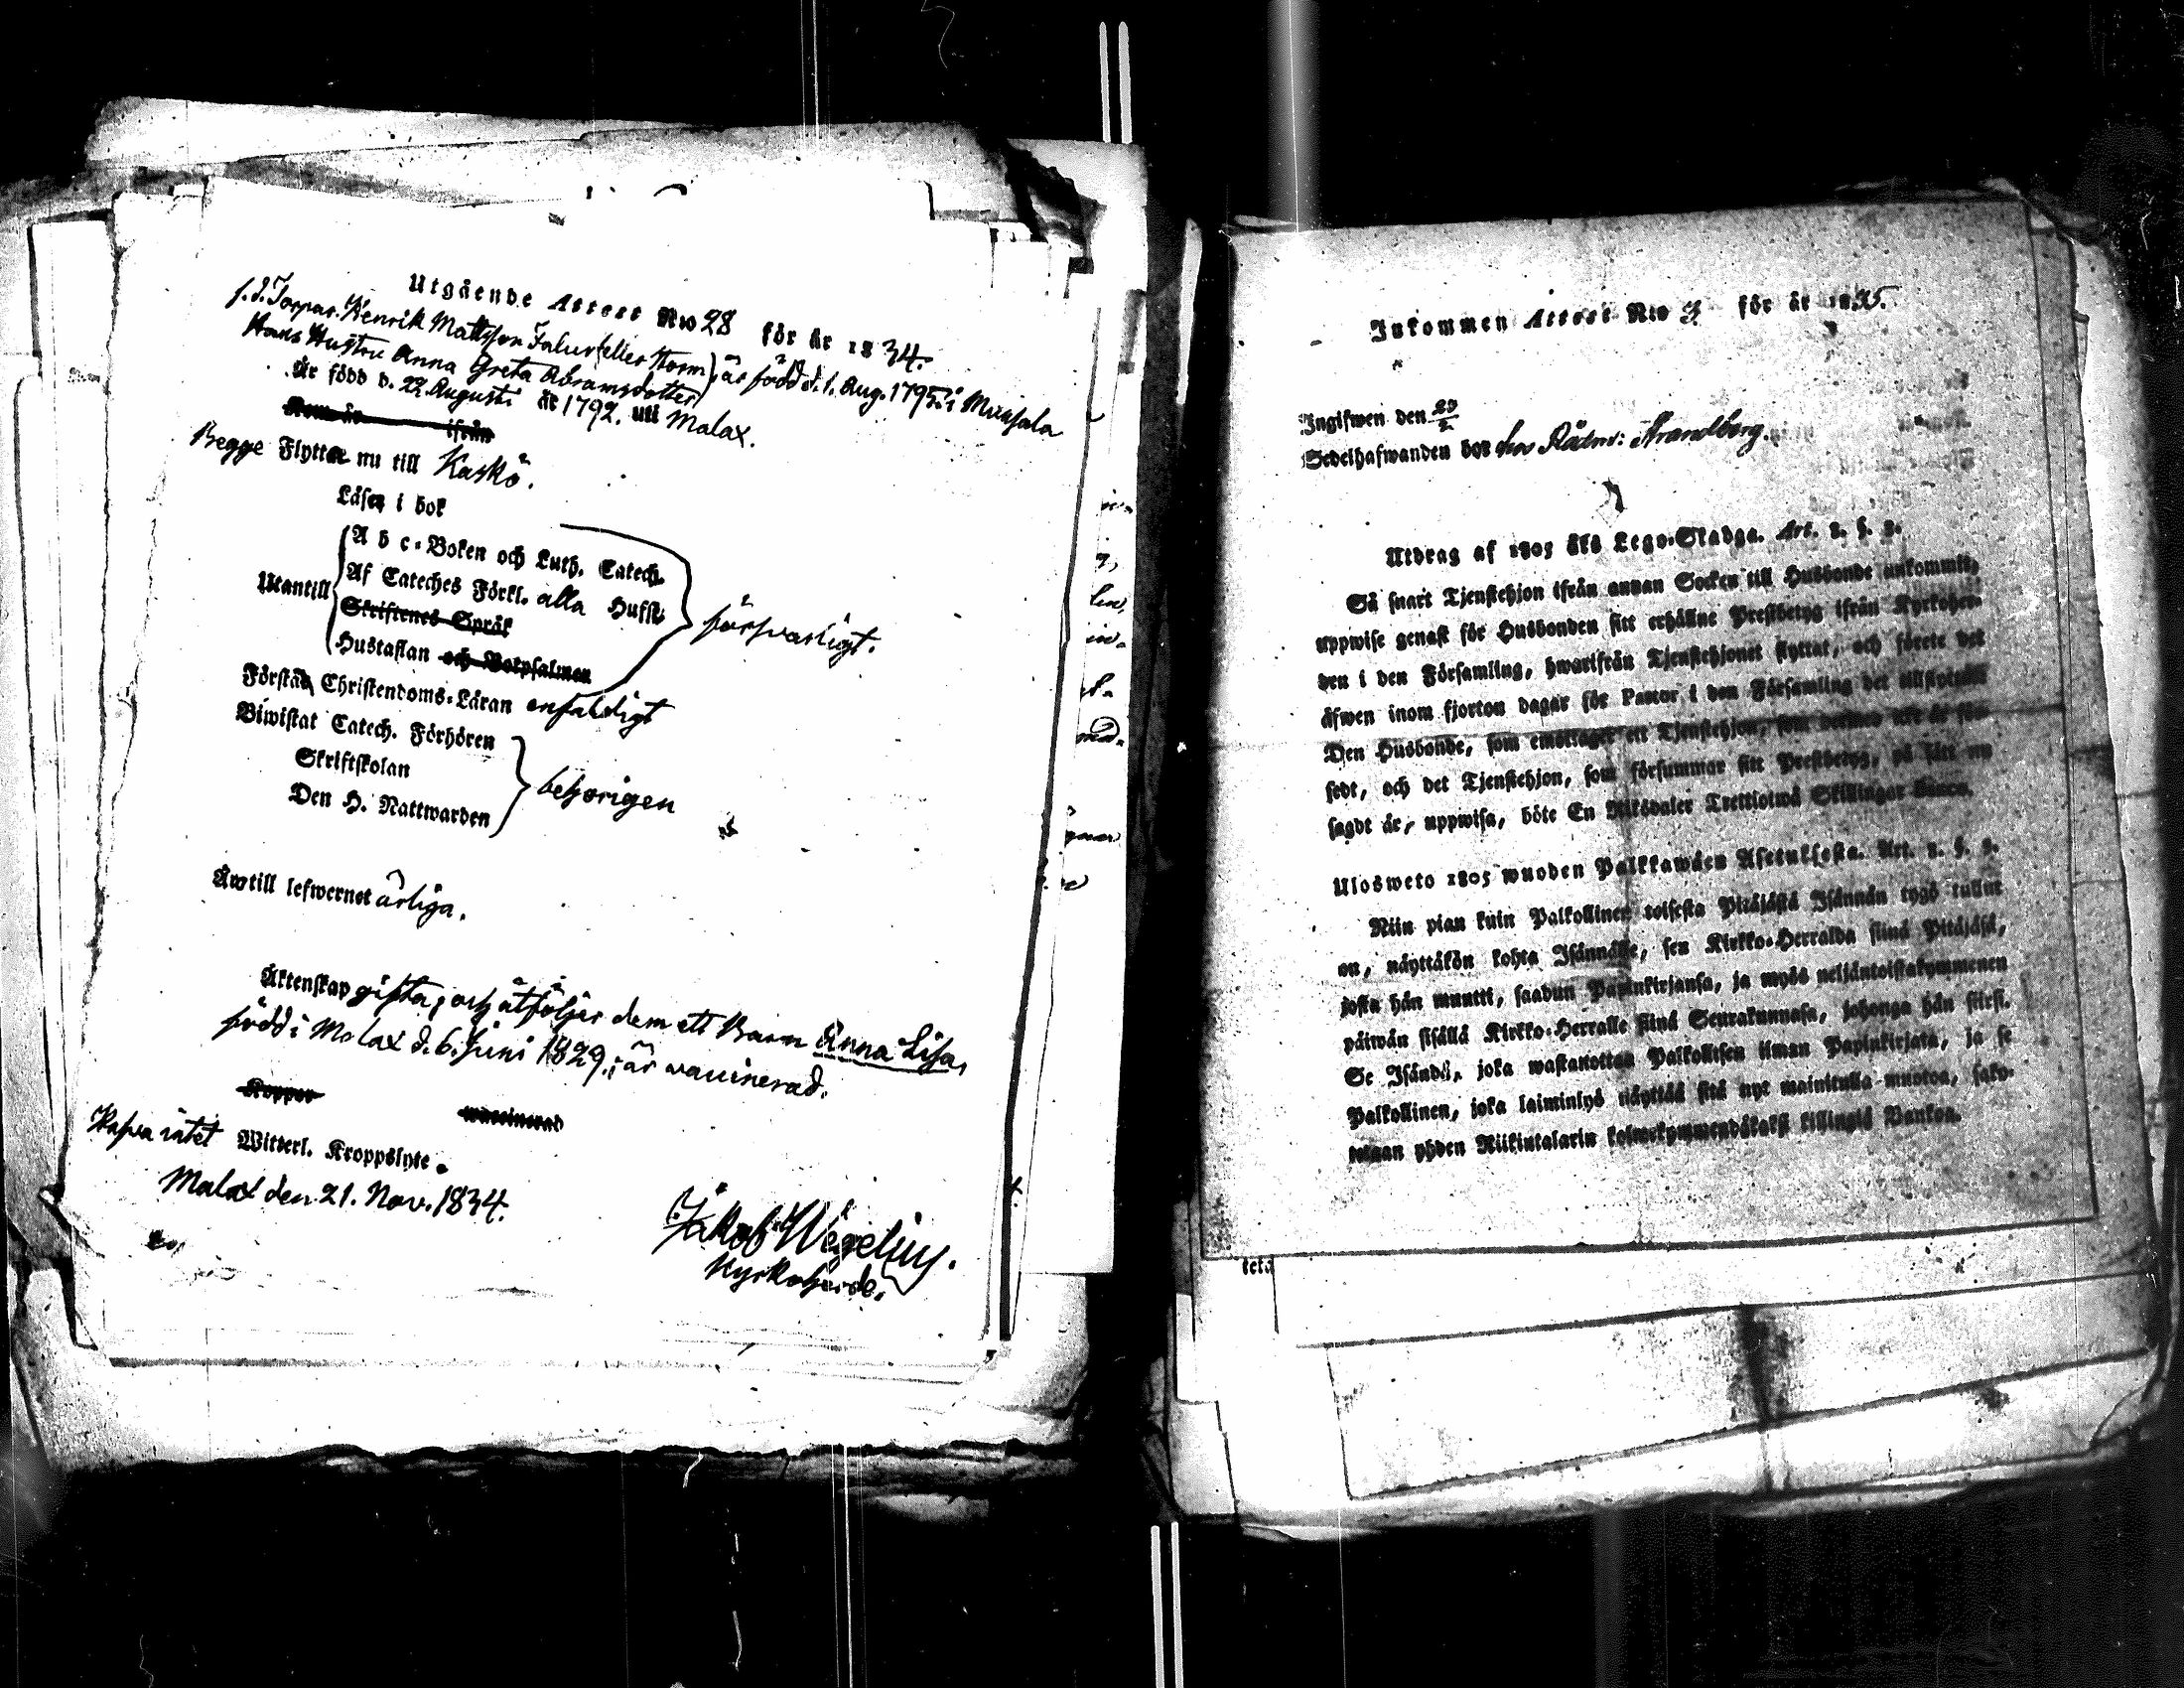 Utgående Attest N:o 28 för år 1834.
f.d. Torpar. Henrik Mattsson Falur (eller Storm) är född d. 1. Aug. 1795 i Munsala
Hans Hustru Anna Greta Abramsdotter)
Är född d. 22. Augusti år 1792. uti Malax.
Kom år ifrån
Begge Flytta nu till Kaskö.
Läser i bok
A b c-Boken och Luth. Catech.
Af Cateches Förkl. alla Hufst.
Utantill
Skriftenes Språk
Hustaflan och Botpsalmen
försvarligt.
Förstå Christendoms-Läran enfaldigt
Biwistat Catech. Förhören
Skriftskolan
Den H. Nattwarden
behörigen
Äro till lefwernet ärliga.
Äktenskap gifta; och åtföljer dem ett Barn Anna Lisa,
född i Malax d. 6. Juni 1829.; är vaccinerad.
Koppor waccinerad
Hafva intet Witterl. Kroppslyte.
Malax den 21. Nov. 1834.
Jakob Wegelius.
Kyrkoherde.
Inkommen Attest N:o 3 för år 1835.
Ingifwen den 23/2
Sedelhafwanden bor hos Rådm: Strandberg.
Utdrag af 1805 års Lego-Stadga. Art. 2. §. 2.
Så snart Tjenstehjon ifrån annan Socken till Husbonde ankommit,
uppwise genast för Husbonden sitt erhållne Prestbetyg ifrån Kyrkoher-
den i den Församling, hwarifrån Tjenstehjonet flyttat, och förete det
äfwen inom fjorton dagar för Pastor i den Församling det tillflyttat
Den Husbonde, som emottager ett Tjenstehjon, som dermed
sedt, och det Tjenstehjon, som försummar sitt Prestbetyg, på sätt nu
sagdt är, uppwisa, böte En Riksdaler Trettiotwå Skillingar Banco.
Ulosweto 1805 wuoden Palkkawäen Asetuksesta. Art. 2. §. 2.
Niin pian kuin Palkollinen toisesta Pitäjästä Isännän tygö tullut
on, näyttäkön kohta Isännälle, sen Kirkko-Herralda siinä Pitäjäsä,
josta hän muutti, saadun Papinkirjansa, ja myös neljäntoistakymmenen
päiwän sisällä Kirkko-Herralle siinä Seurakunnasa, johonga hän siirsi.
Se Isändä, joka wastanottaa Palkollisen ilman Papinkirjata, ja se
Palkollinen, joka laiminlyö näyttää sitä nyt mainitulla muotoa, sako-
tetaan yhden Riikintalarin kolmekymmendäkaksi killingiä Bankoa.